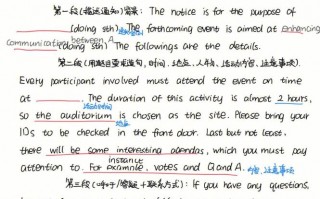 第一段(描述通知)答案: The notice is for the purpose of
____(doing sth) The forthcoming event is aimed at enhancing
communication between A
(doing sth) The followings are the details.
第二段(用短目录或连句, 时间、地点、人物、活动内容、注意事项)
Every participant involved must attend the event on time
at ____. The duration of this activity is almost 2 hours,
活动时间
so the auditorium is chosen as the site. Please bring your
地点
IDs to be checked in the front door. Last but not least,
there will be some interesting agendas, which you must pay
instance
attention to. For example, votes and Q and A. 内容, 注意事项
If you have any questions,